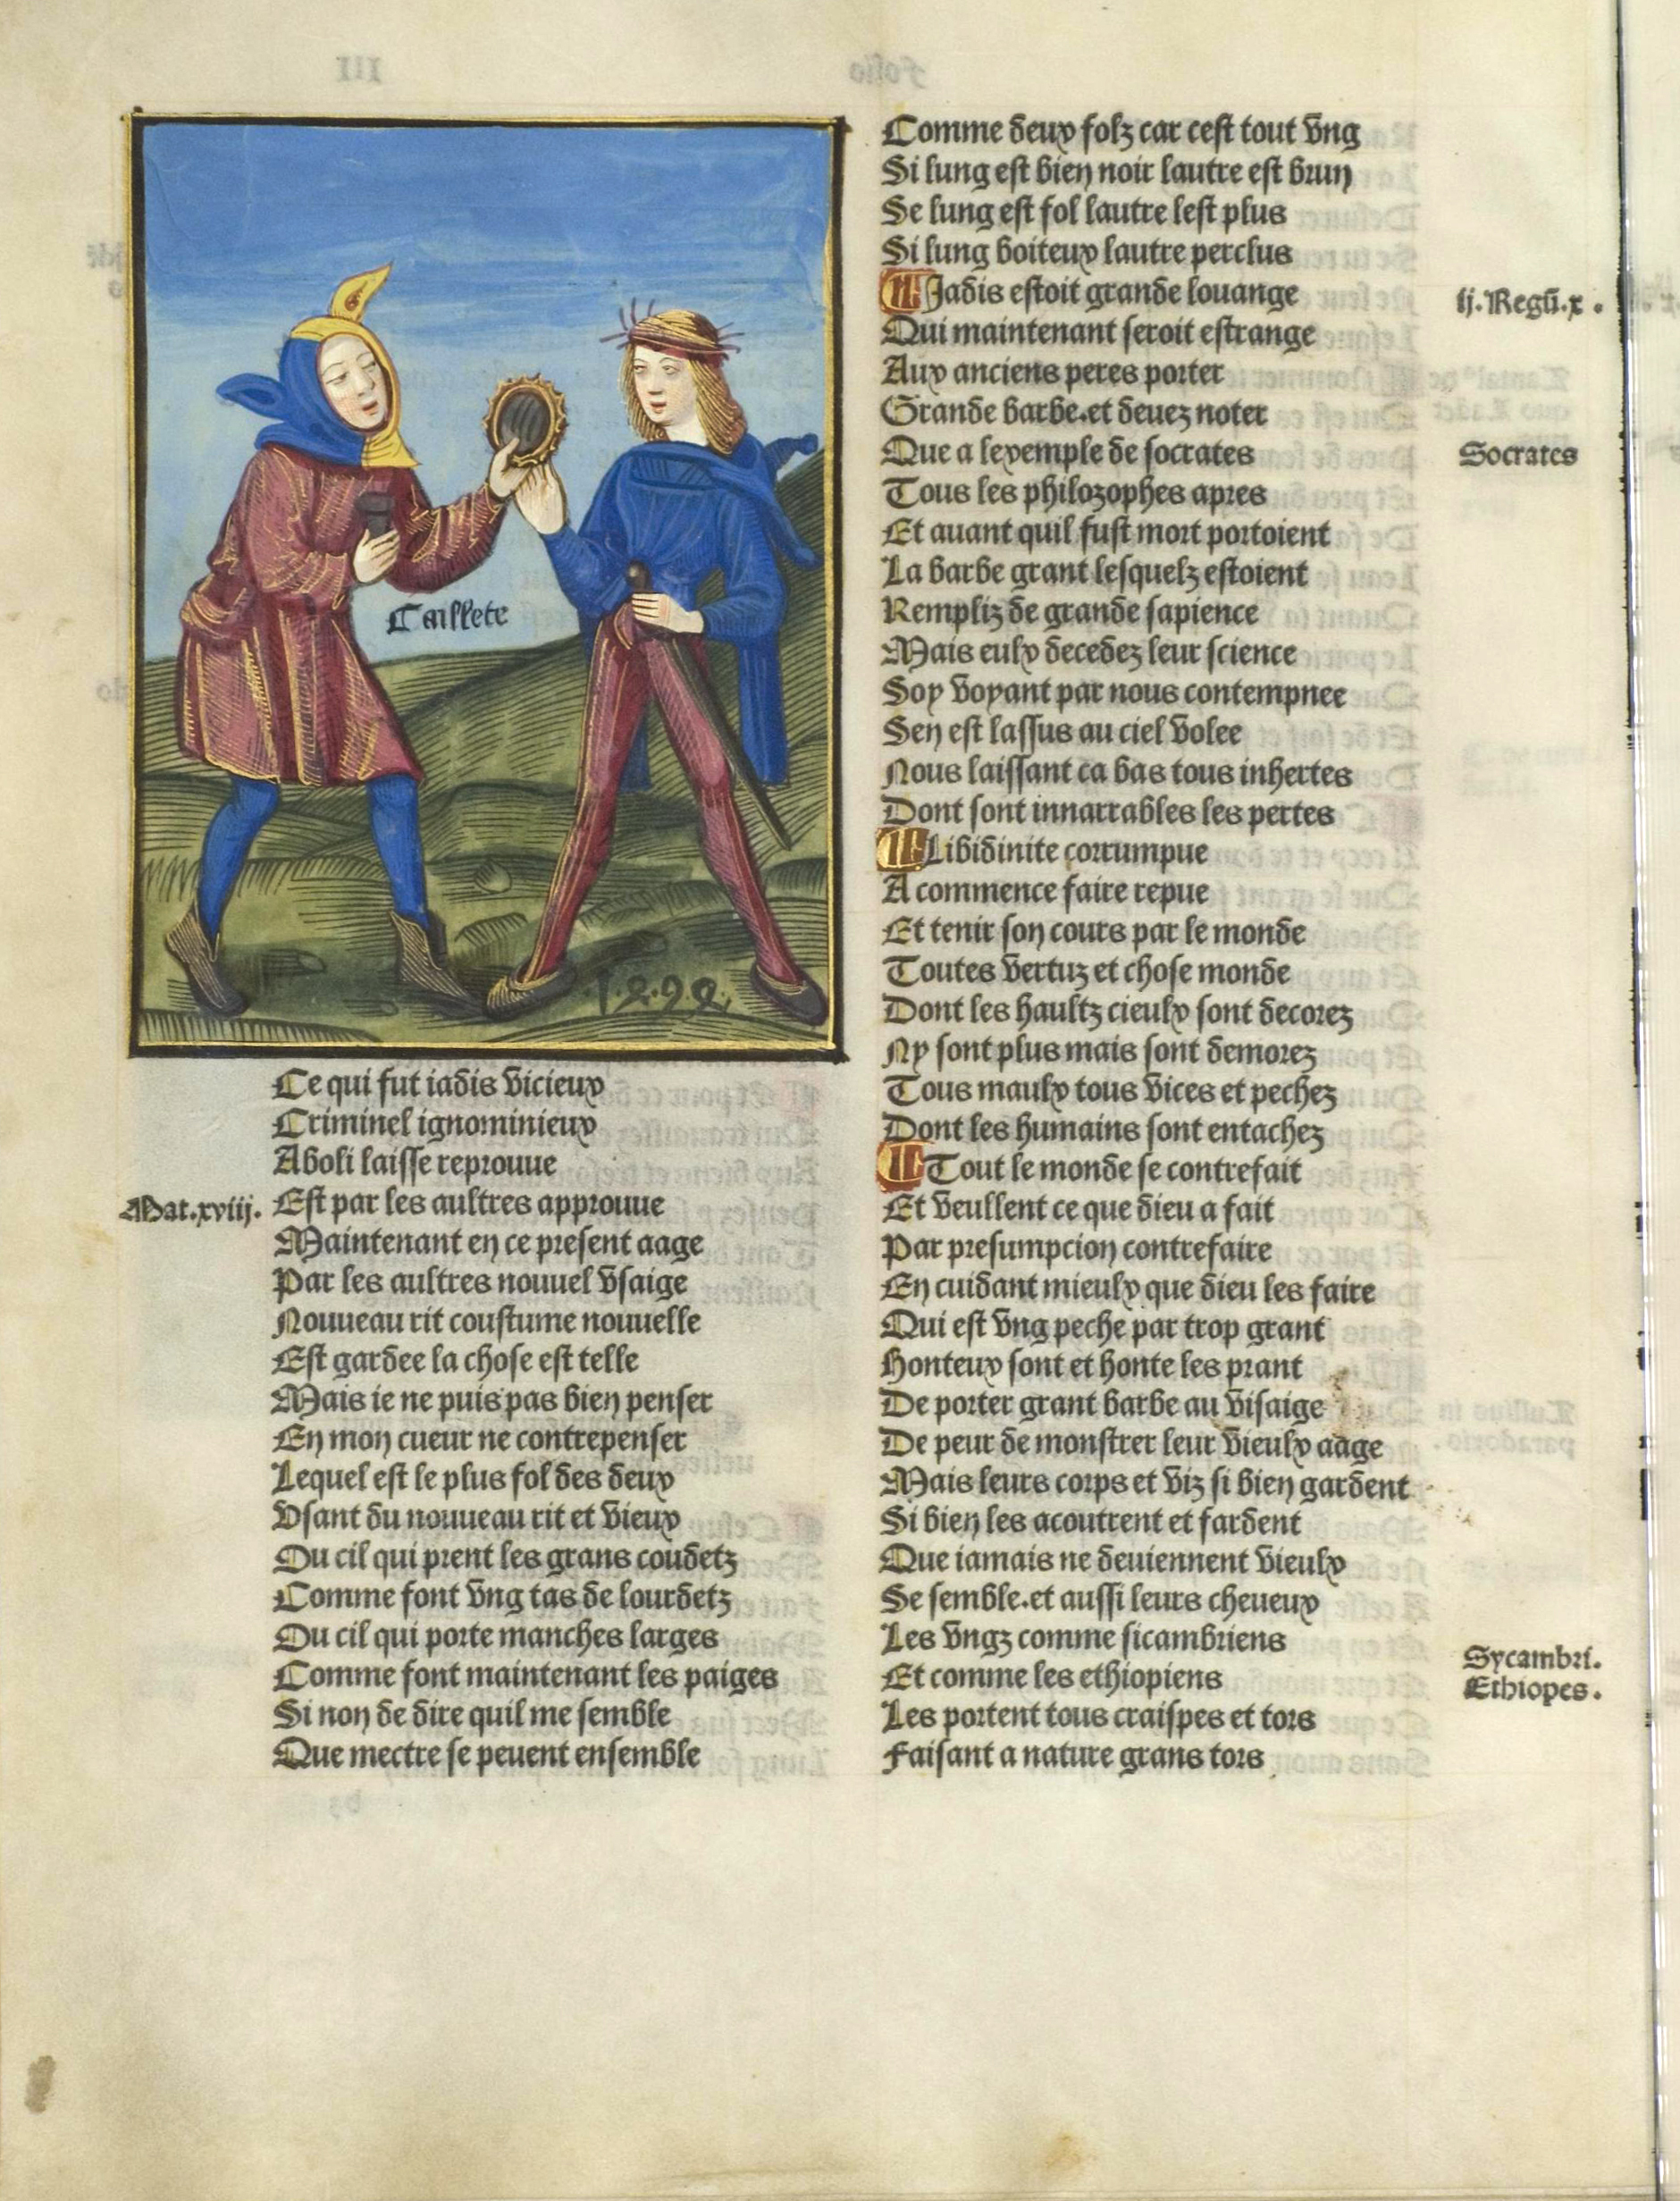 Caillete
1.4.9.4.
Ce qui fut iadis vicieux
Criminel ignominieux
Aboli laisse reprouue
Mat.xviij.
Est par les aultres approuue
Maintenant en ce present aage
Par les aultres nouuel vsaige
Nouueau rit coustume nouuelle
Est gardee la chose est telle
Mais ie ne puis pas bien penser
En mon cueur ne contrepenser
Lequel est le plus fol des deux
Vsant du nouueau rit et vieux
Ou cil qui prent les grans coudetz
Comme font vng tas de lourdetz
Ou cil qui porte manches larges
Comme font maintenant les paiges
Si non de dire quil me semble
Que mectre se peuent ensemble
Comme deux folz car cest tout vng
Si lung est bien noir lautre est brun
Se lung est fol lautre lest plus
Si lung boiteux lautre perclus
Jadis estoit grande louange
ij.Regū.x.
Qui maintenant seroit estrange
Aux anciens peres porter
Grande barbe.et deuez noter
Que a lexemple de socrates
Socrates
Tous les philozophes apres
Et auant quil fust mort portoient
La barbe grant lesquelz estoient
Rempliz de grande sapience
Mais eulx decedez leur science
Soy voyant par nous contempnee
Sen est lassus au ciel volee
Nous laissant ca bas tous inhertes
Dont sont innarrables les pertes
Libidinite corrumpue
A commence faire repue
Et tenir son cours par le monde
Toutes vertuz et chose monde
Dont les haultz cieulx sont decorez
Ny sont plus mais sont demorez
Tous maulx tous vices et pechez
Dont les humains sont entachez
Tout le monde se contrefait
Et veullent ce que dieu a fait
Par presumpcion contrefaire
En cuidant mieulx que dieu les faire
Qui est vng peche par trop grant
Honteux sont et honte les prant
De porter grant barbe au visaige
De peur de monstrer leur vieulx aage
Mais leurs corps et viz si bien gardent
Si bien les acoutrent et fardent
Que iamais ne deuiennent vieulx
Se semble.et aussi leurs cheueux
Les vngz comme sicambriens
Sycambri.
Et comme les ethiopiens
Ethiopes.
Les portent tous craispes et tors
Faisant a nature grans tors